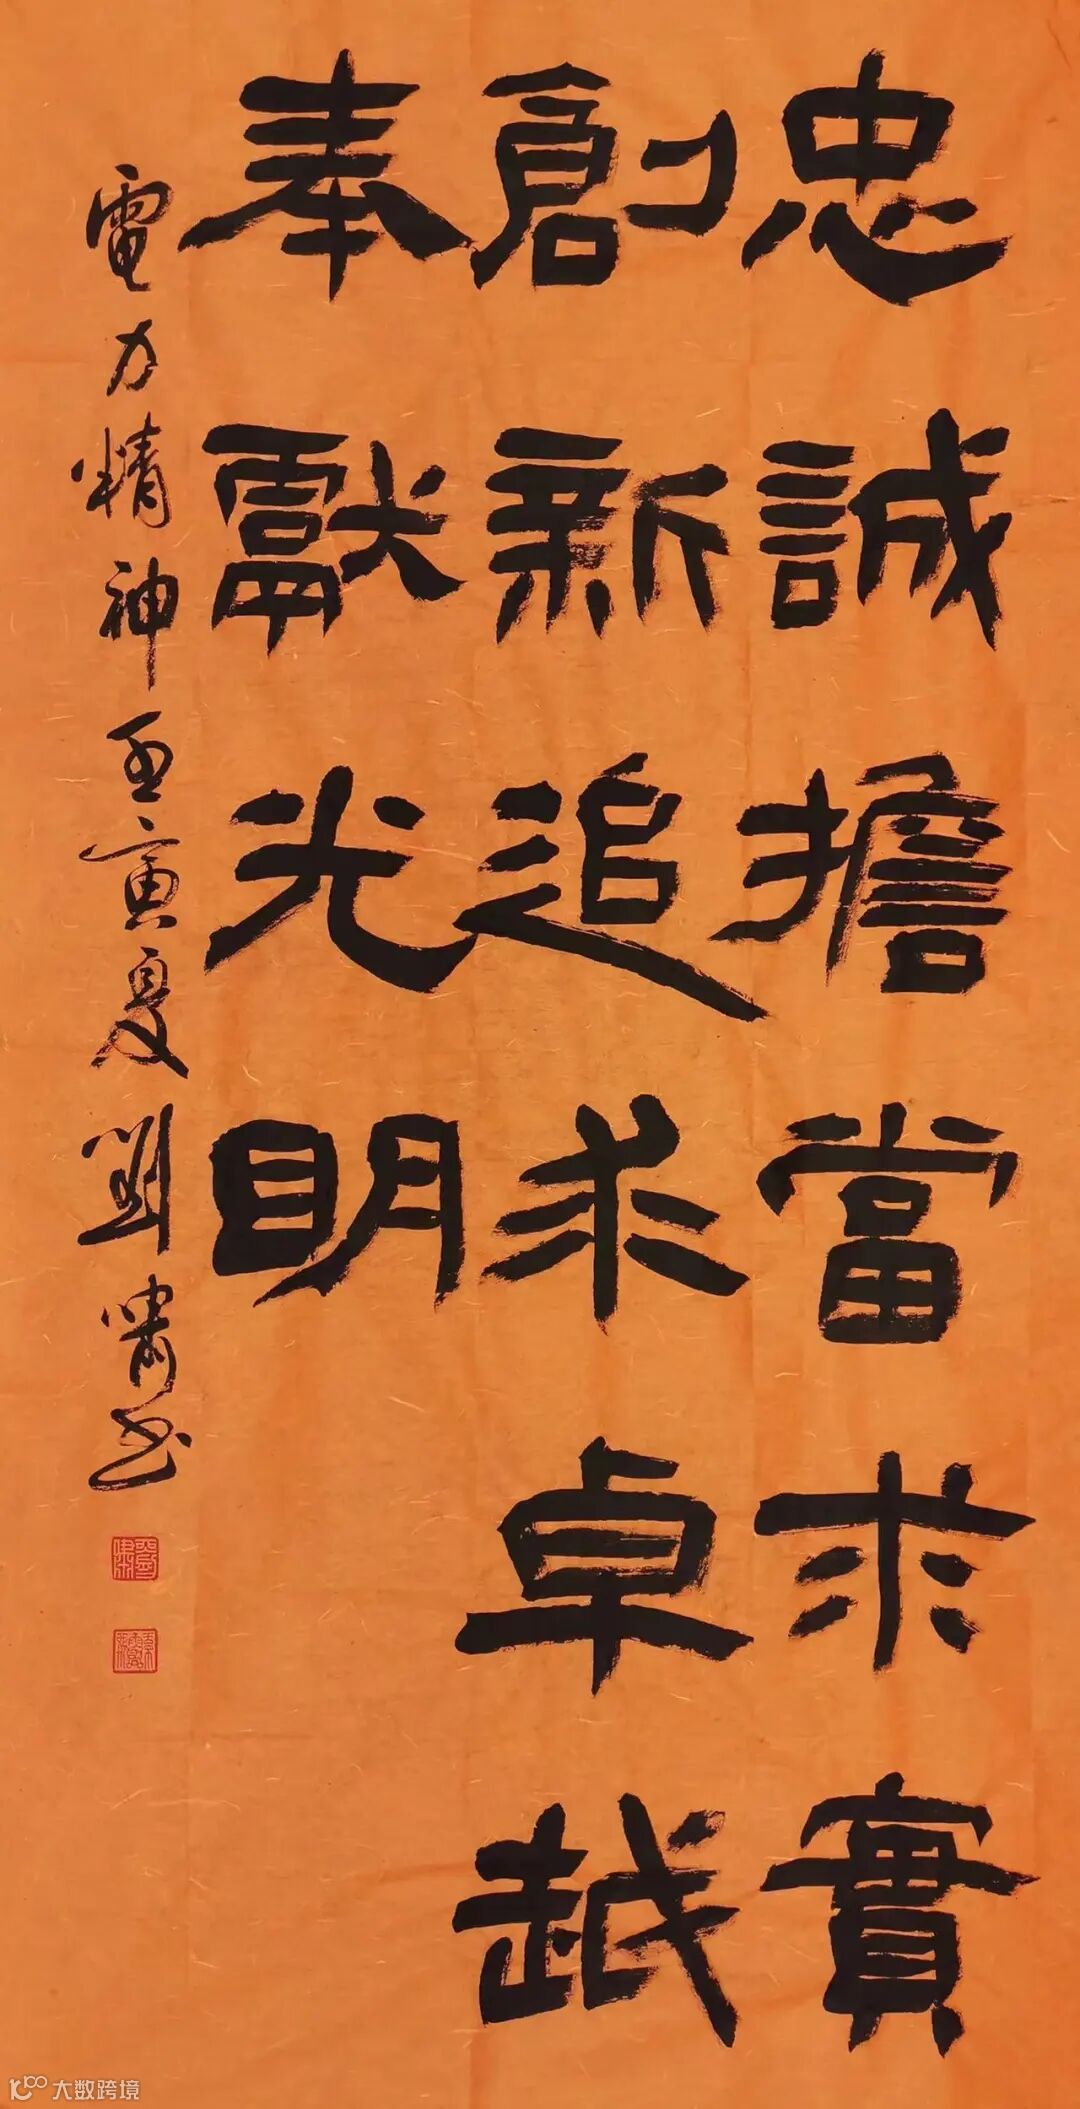 忠誠擔當求實
創新追求卓越
奉獻光明
電力精神壬寅夏劉嘯书
大数跨境